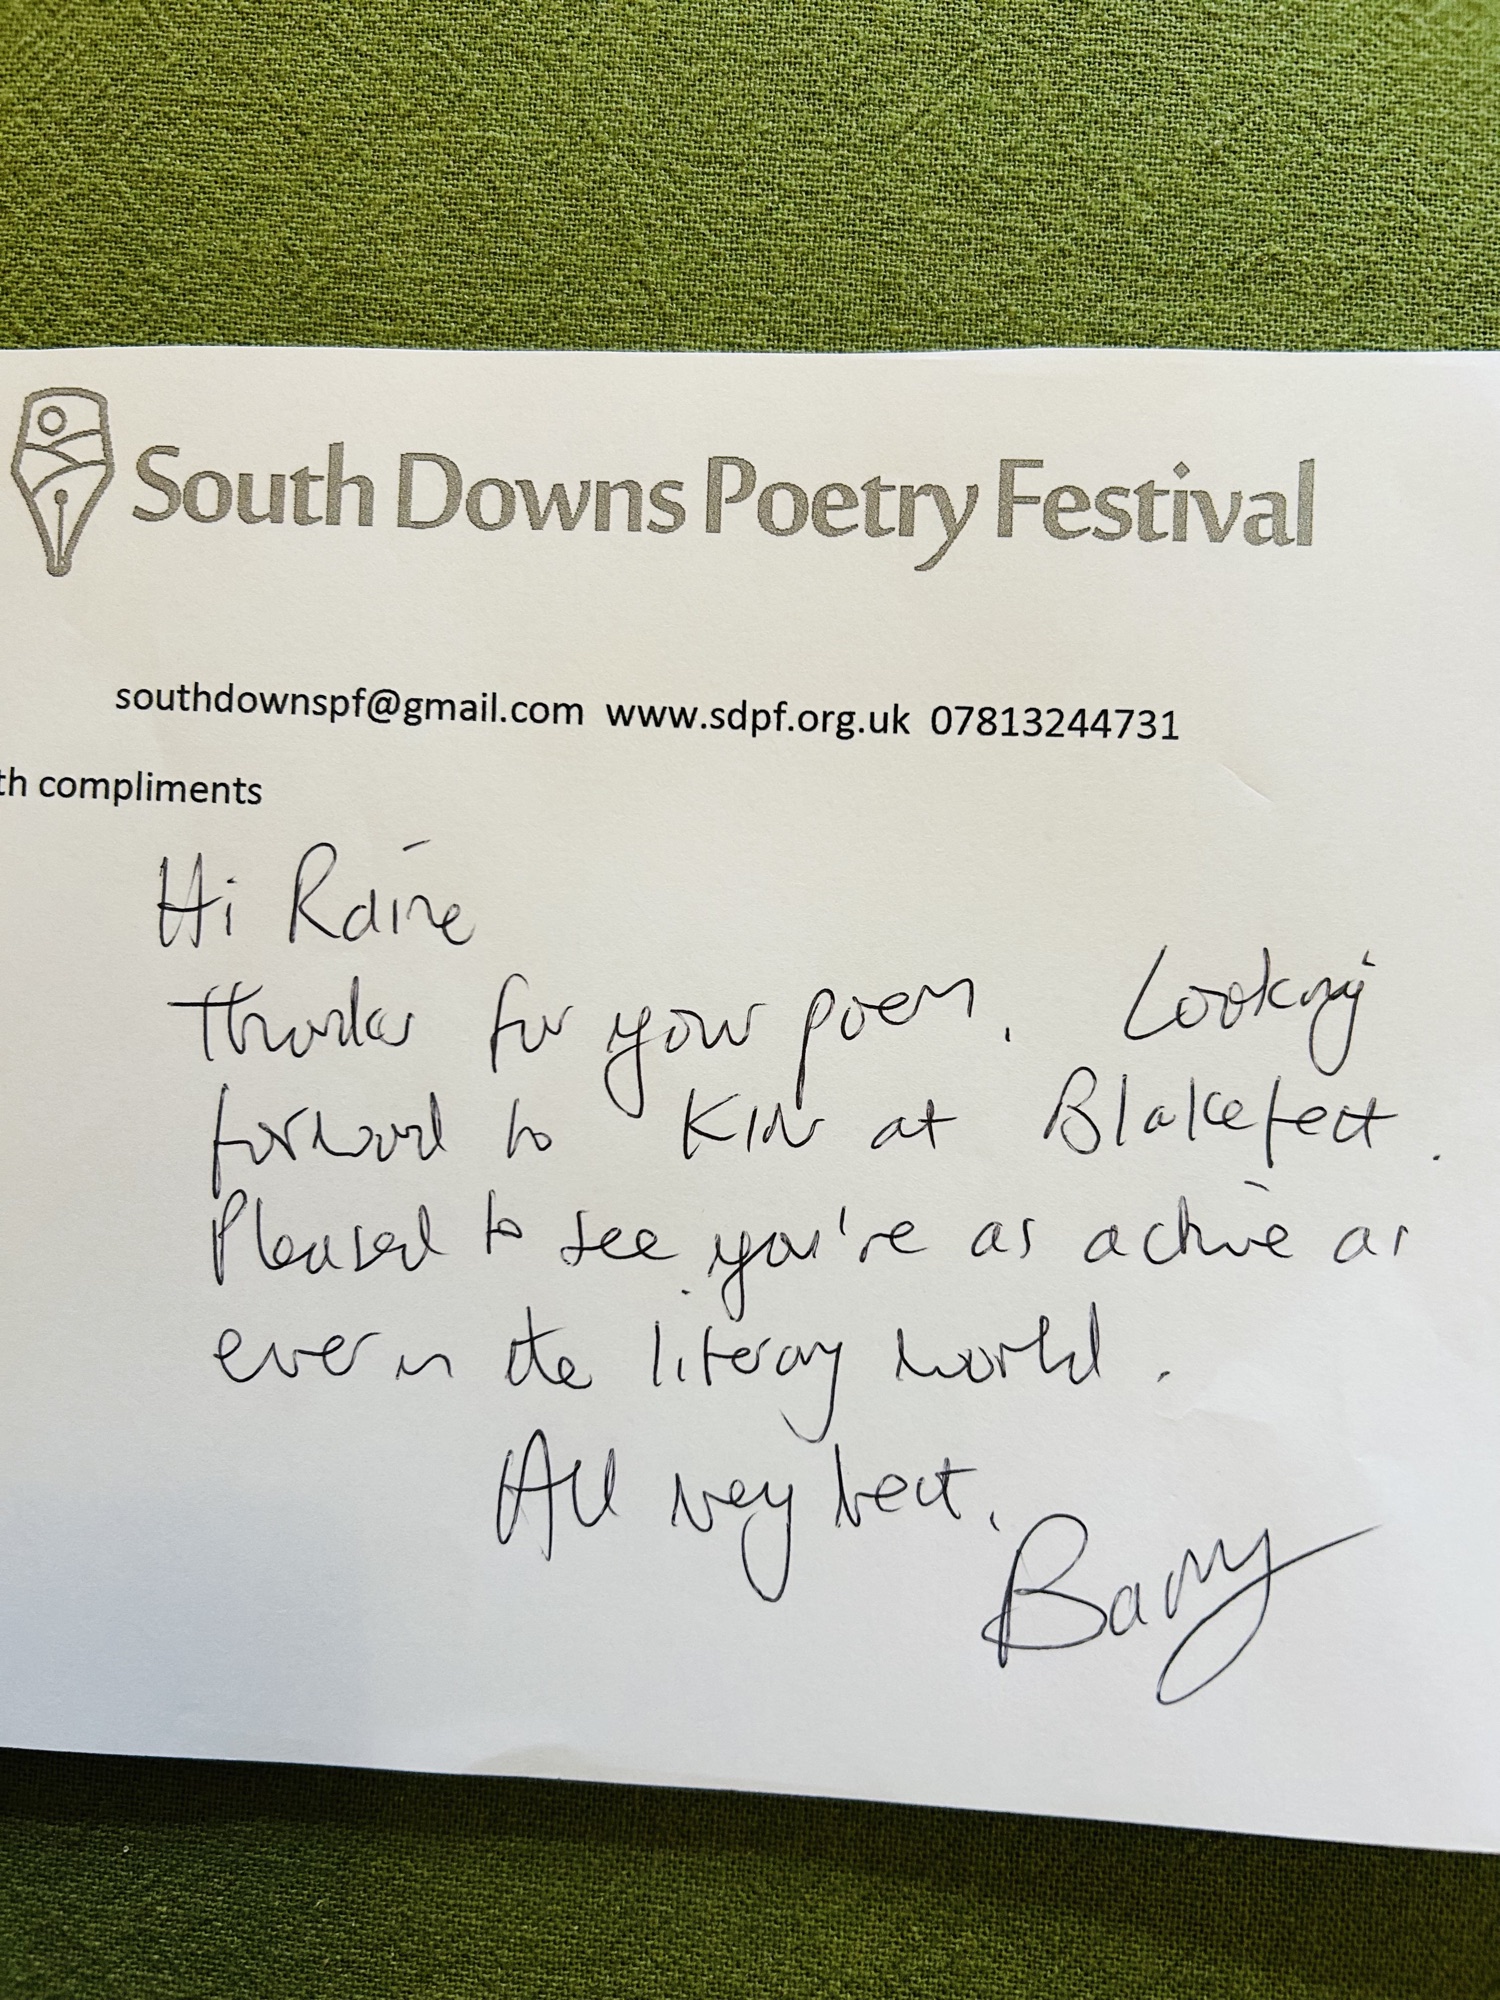 South Downs Poetry Festival
southdownspf@gmail.com www.sdpf.org.uk 07813244731
th compliments
Hi Raine
Thanks for your poem. Looking
forward to KIN at Blakefest.
Pleased to see you're as active as
ever in the literary world.
All very best.
Barry